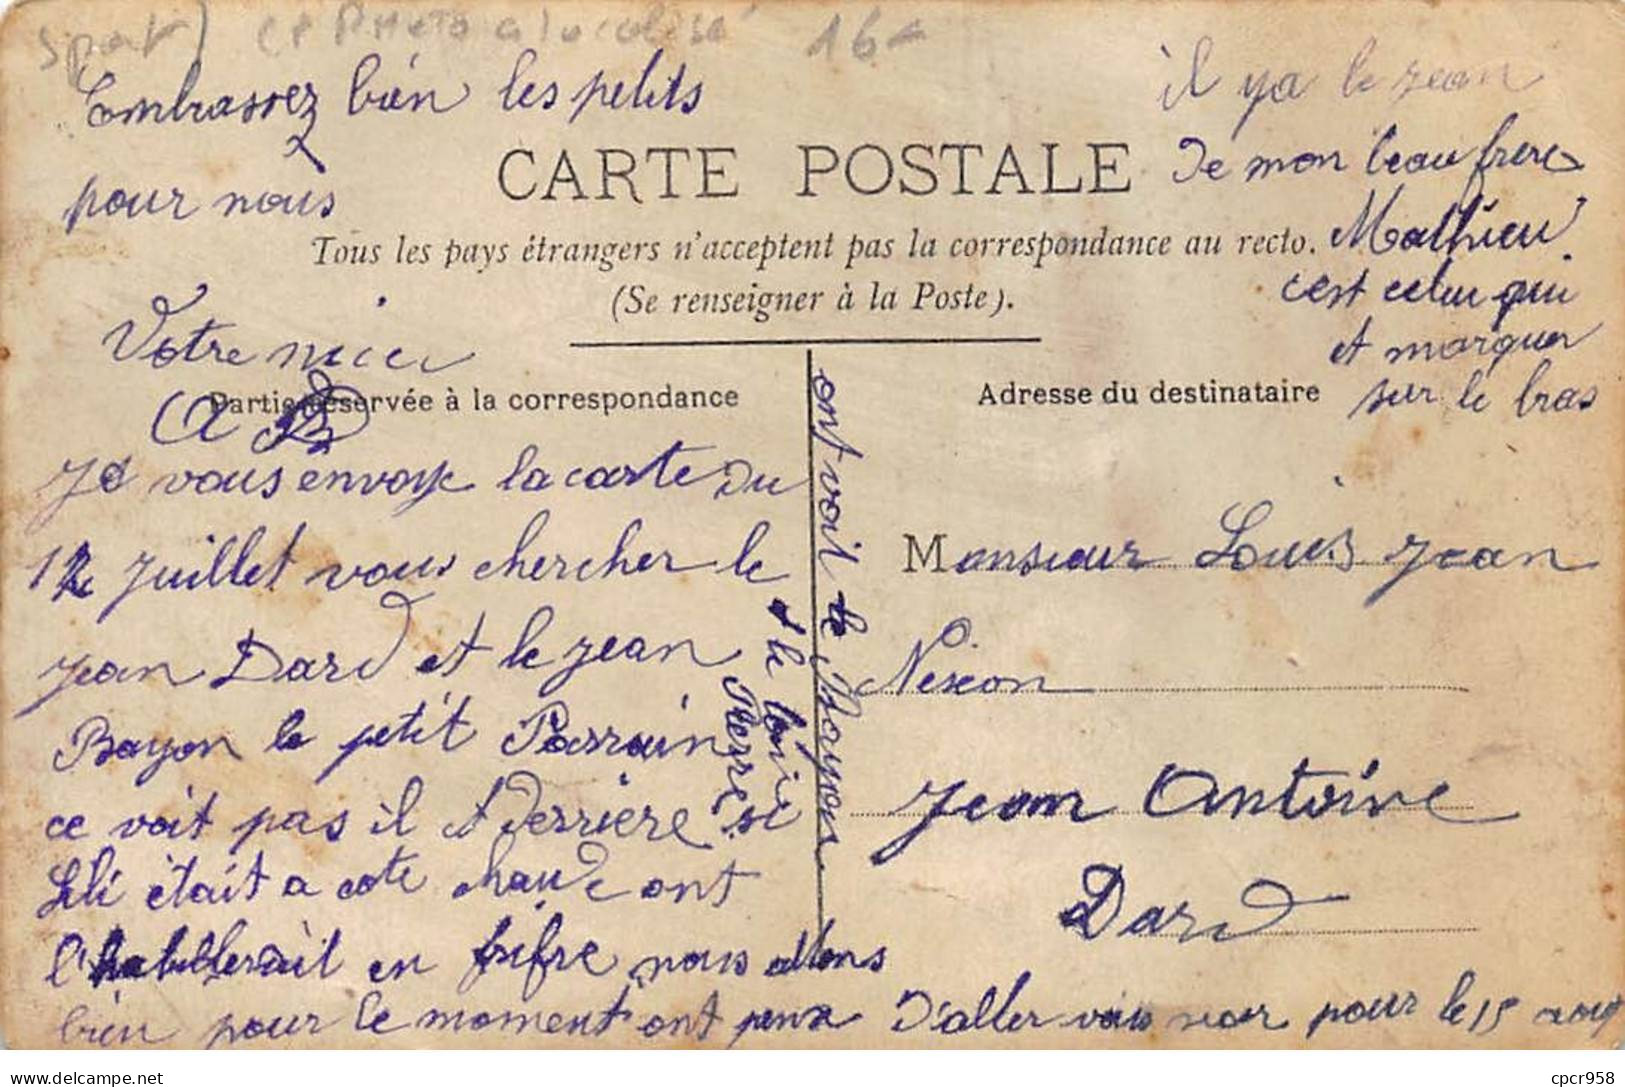 Sport) CP Photo a localisé 16€
Embrassez bien les petits
pour nous
Votre niece
il ya le jean
De mon beau frere
Mathieu
cest celui qui
et marquer
sur le bras
CARTE POSTALE
Tous les pays étrangers n'acceptent pas la correspondance au recto.
(Se renseigner à la Poste).
Partie réservée à la correspondance
Adresse du destinataire
Je vous envoye la carte du
12 Juillet vous chercher le
jean Dard et le jean
Bayon le petit Parrain
ce voit pas il et Derriere
Lili était a coté
ont
l'habillerait en fifre nous allons
bien pour le moment ont peux D'aller vous voir pour le 15 aout
si le
Pierre
ont voit le Bayon
Monsieur Louis Jean
Nexon
Jean Antoine
Dard
cpcr958